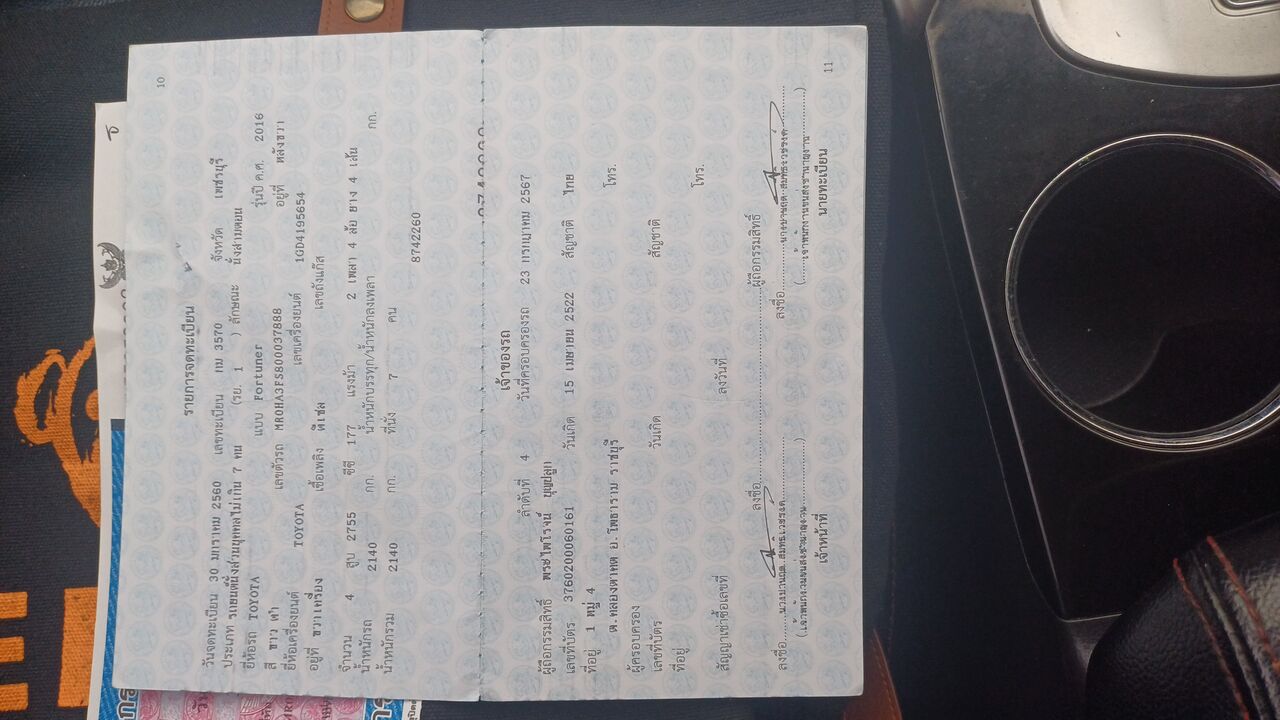 10
รายการจดทะเบียน
วันจดทะเบียน 30 มกราคม 2560 เลขทะเบียน กม 3570 จังหวัด เพชรบุรี
ประเภท รถยนต์นั่งส่วนบุคคลไม่เกิน 7 คน (รย. 1 ) ลักษณะ นั่งสามตอน
ยี่ห้อรถ TOYOTA แบบ Fortuner รุ่นปี ค.ศ. 2016
สี ขาว ดำ เลขตัวรถ MR0HA3FS800037888 อยู่ที่ หลังขวา
ยี่ห้อเครื่องยนต์ TOYOTA เลขเครื่องยนต์ 1GD4195654
อยู่ที่ ขวาเครื่อง เชื้อเพลิง ดีเซล เลขถังแก๊ส
จำนวน 4 สูบ 2755 ซีซี 177 แรงม้า 2 เพลา 4 ล้อ ยาง 4 เส้น
น้ำหนักรถ 2140 กก. น้ำหนักบรรทุก/น้ำหนักลงเพลา กก.
น้ำหนักรวม 2140 กก. ที่นั่ง 7 คน
8742260
เจ้าของรถ
ลำดับที่ 4 วันที่ครอบครองรถ 23 กรกฎาคม 2567
ผู้ถือกรรมสิทธิ์ พระไพโรจน์ บุญปลูก
เลขที่บัตร 3760200060161 วันเกิด 15 เมษายน 2522 สัญชาติ ไทย
ที่อยู่ 1 หมู่ 4 โทร.
ต.คลองตาคต อ.โพธาราม ราชบุรี
ผู้ครอบครอง
เลขที่บัตร วันเกิด สัญชาติ
ที่อยู่ โทร.
สัญญาเช่าซื้อเลขที่ ลงวันที่
ลงชื่อ ผู้ถือกรรมสิทธิ์
ลงชื่อ ลงชื่อ
(เจ้าพนักงานขนส่งชำนาญงาน) (เจ้าพนักงานขนส่งชำนาญงาน)
เจ้าหน้าที่ นายทะเบียน
11